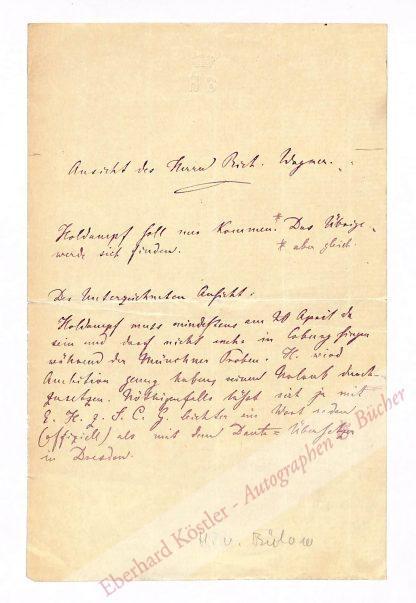 Ansicht des Herrn Rich. Wagner.
Holdampf soll nur kommen.* Das Übrige
werde sich finden. * aber gleich.
Des Unterzeichneten Ansicht:
Holdampf muss mindestens am 20 April da
sein und darf nicht mehr in Coburg singen
während der Münchner Proben. H. wird
Ambition genug haben, seinen Urlaub durch-
zusetzen. Nöthigenfalls lässt sich ja mit
E. H. z. S. C. G. leichter ein Wort reden
(offiziell) als mit dem Dante-Übersetzer
in Dresden.
H. v. Bülow
Eberhard Köstler - Autographen & Bücher